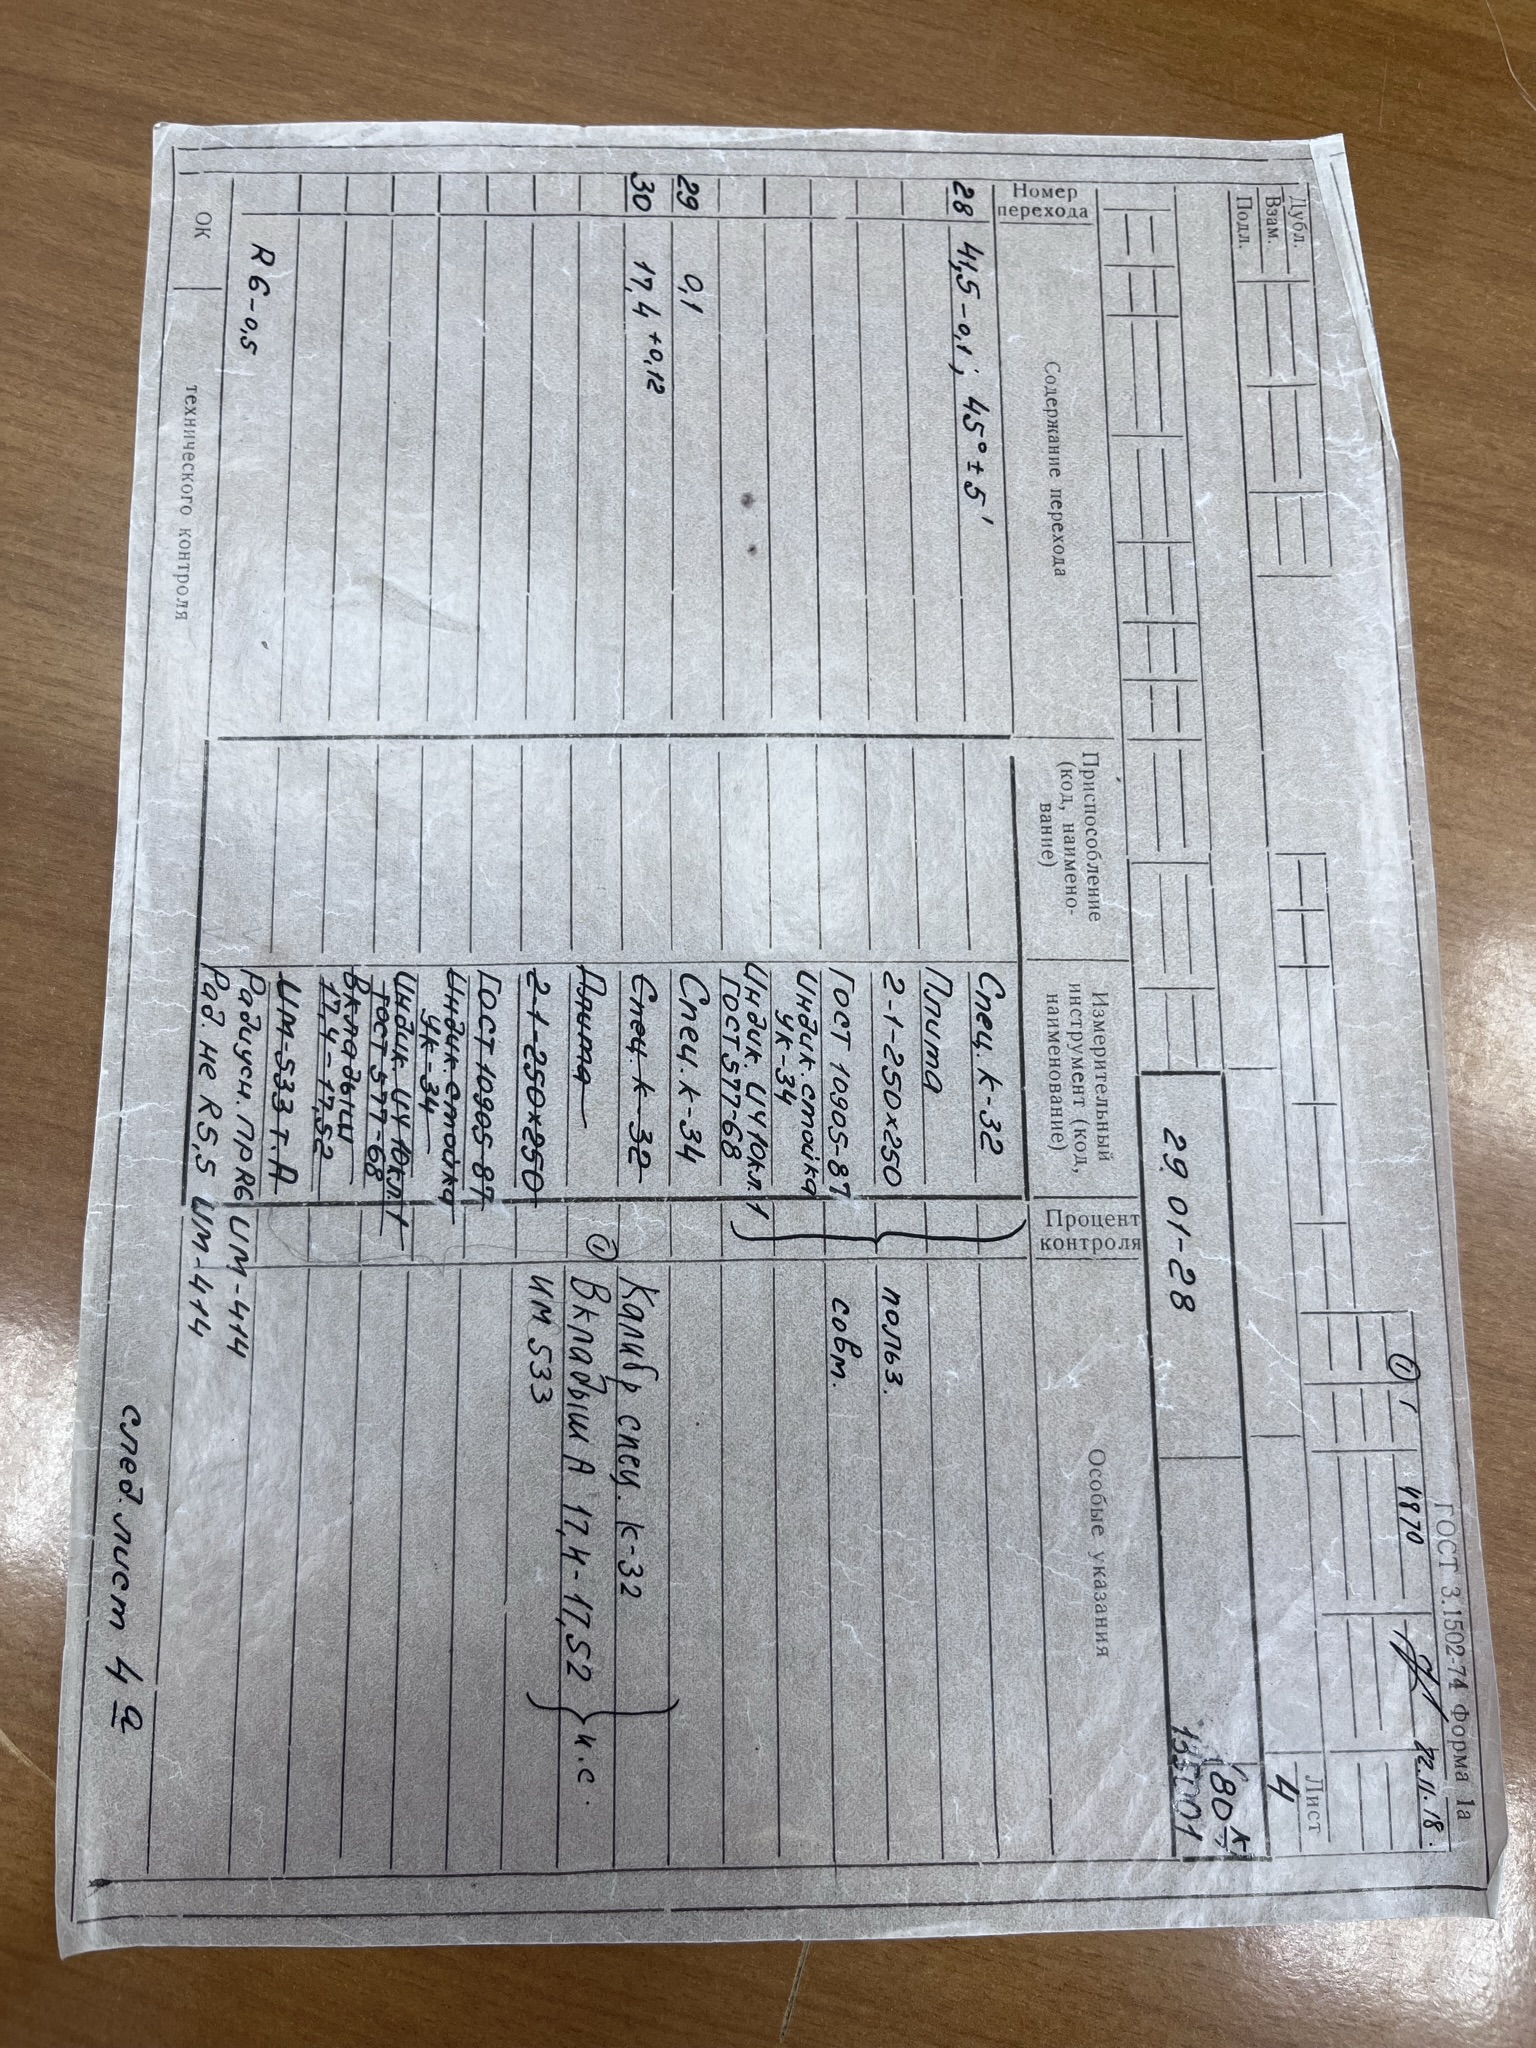 ГОСТ 3.1502-74 Форма 1а
① 1 4870 22.11.18.
Дубл.
Взам.
Подл.
Лист
4
80 к
29.01-28
135001
Номер перехода
Содержание перехода
Приспособление (код, наимено-вание)
Измерительный инструмент (код, наименование)
Процент контроля
Особые указания
28 41,5 -0,1; 45° ± 5' Спец. К-32
Плита
2-1-250×250 польз.
ГОСТ 10905-87 совм.
Индик. стойка
УК-34
Индик. ИЧ 10кл. 1
ГОСТ 577-68
29 0,1 Спец. К-34
30 17,4 +0,12 Спец. К-32 Калибр спец. К-32
Плита ① Вкладыш А 17,4-17,52 и.с.
2-1-250×250 ИМ 533
ГОСТ 10905-87
Индик. стойка
УК-34
Индик. ИЧ 10кл. 1
ГОСТ 577-68
Вкладыш
17,4-17,52
ИМ-533 т. А
R 6 -0,5 Радиусн. ПР R6 ИМ-414
Рад. не R5,5 ИМ-414
ОК технического контроля
след. лист 4 а